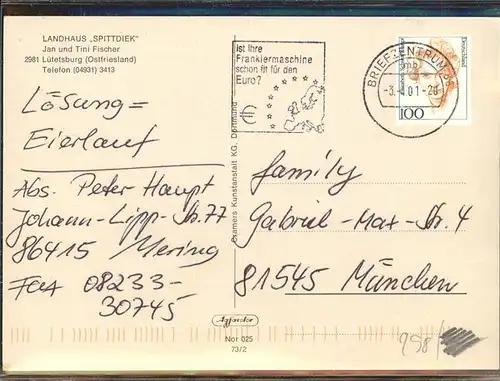 LANDHAUS „SPITTDIEK"
Jan und Tini Fischer
2981 Lütetsburg (Ostfriesland)
Telefon (04931) 3413
Lösung =
Eierlauf
Abs. Peter Haupt
Johann-Lipp-Str. 77
86415 Mering
Fax 08233-
30745
Ist Ihre
Frankiermaschine
schon fit für den
Euro?
€
BRIEFZENTRUM 86
mb
-3.-4.01-20
Deutschland
100
Cramers Kunstanstalt KG, Dortmund
family
Gabriel-Max-Str. 4
81545 München
Nor 025
73/2